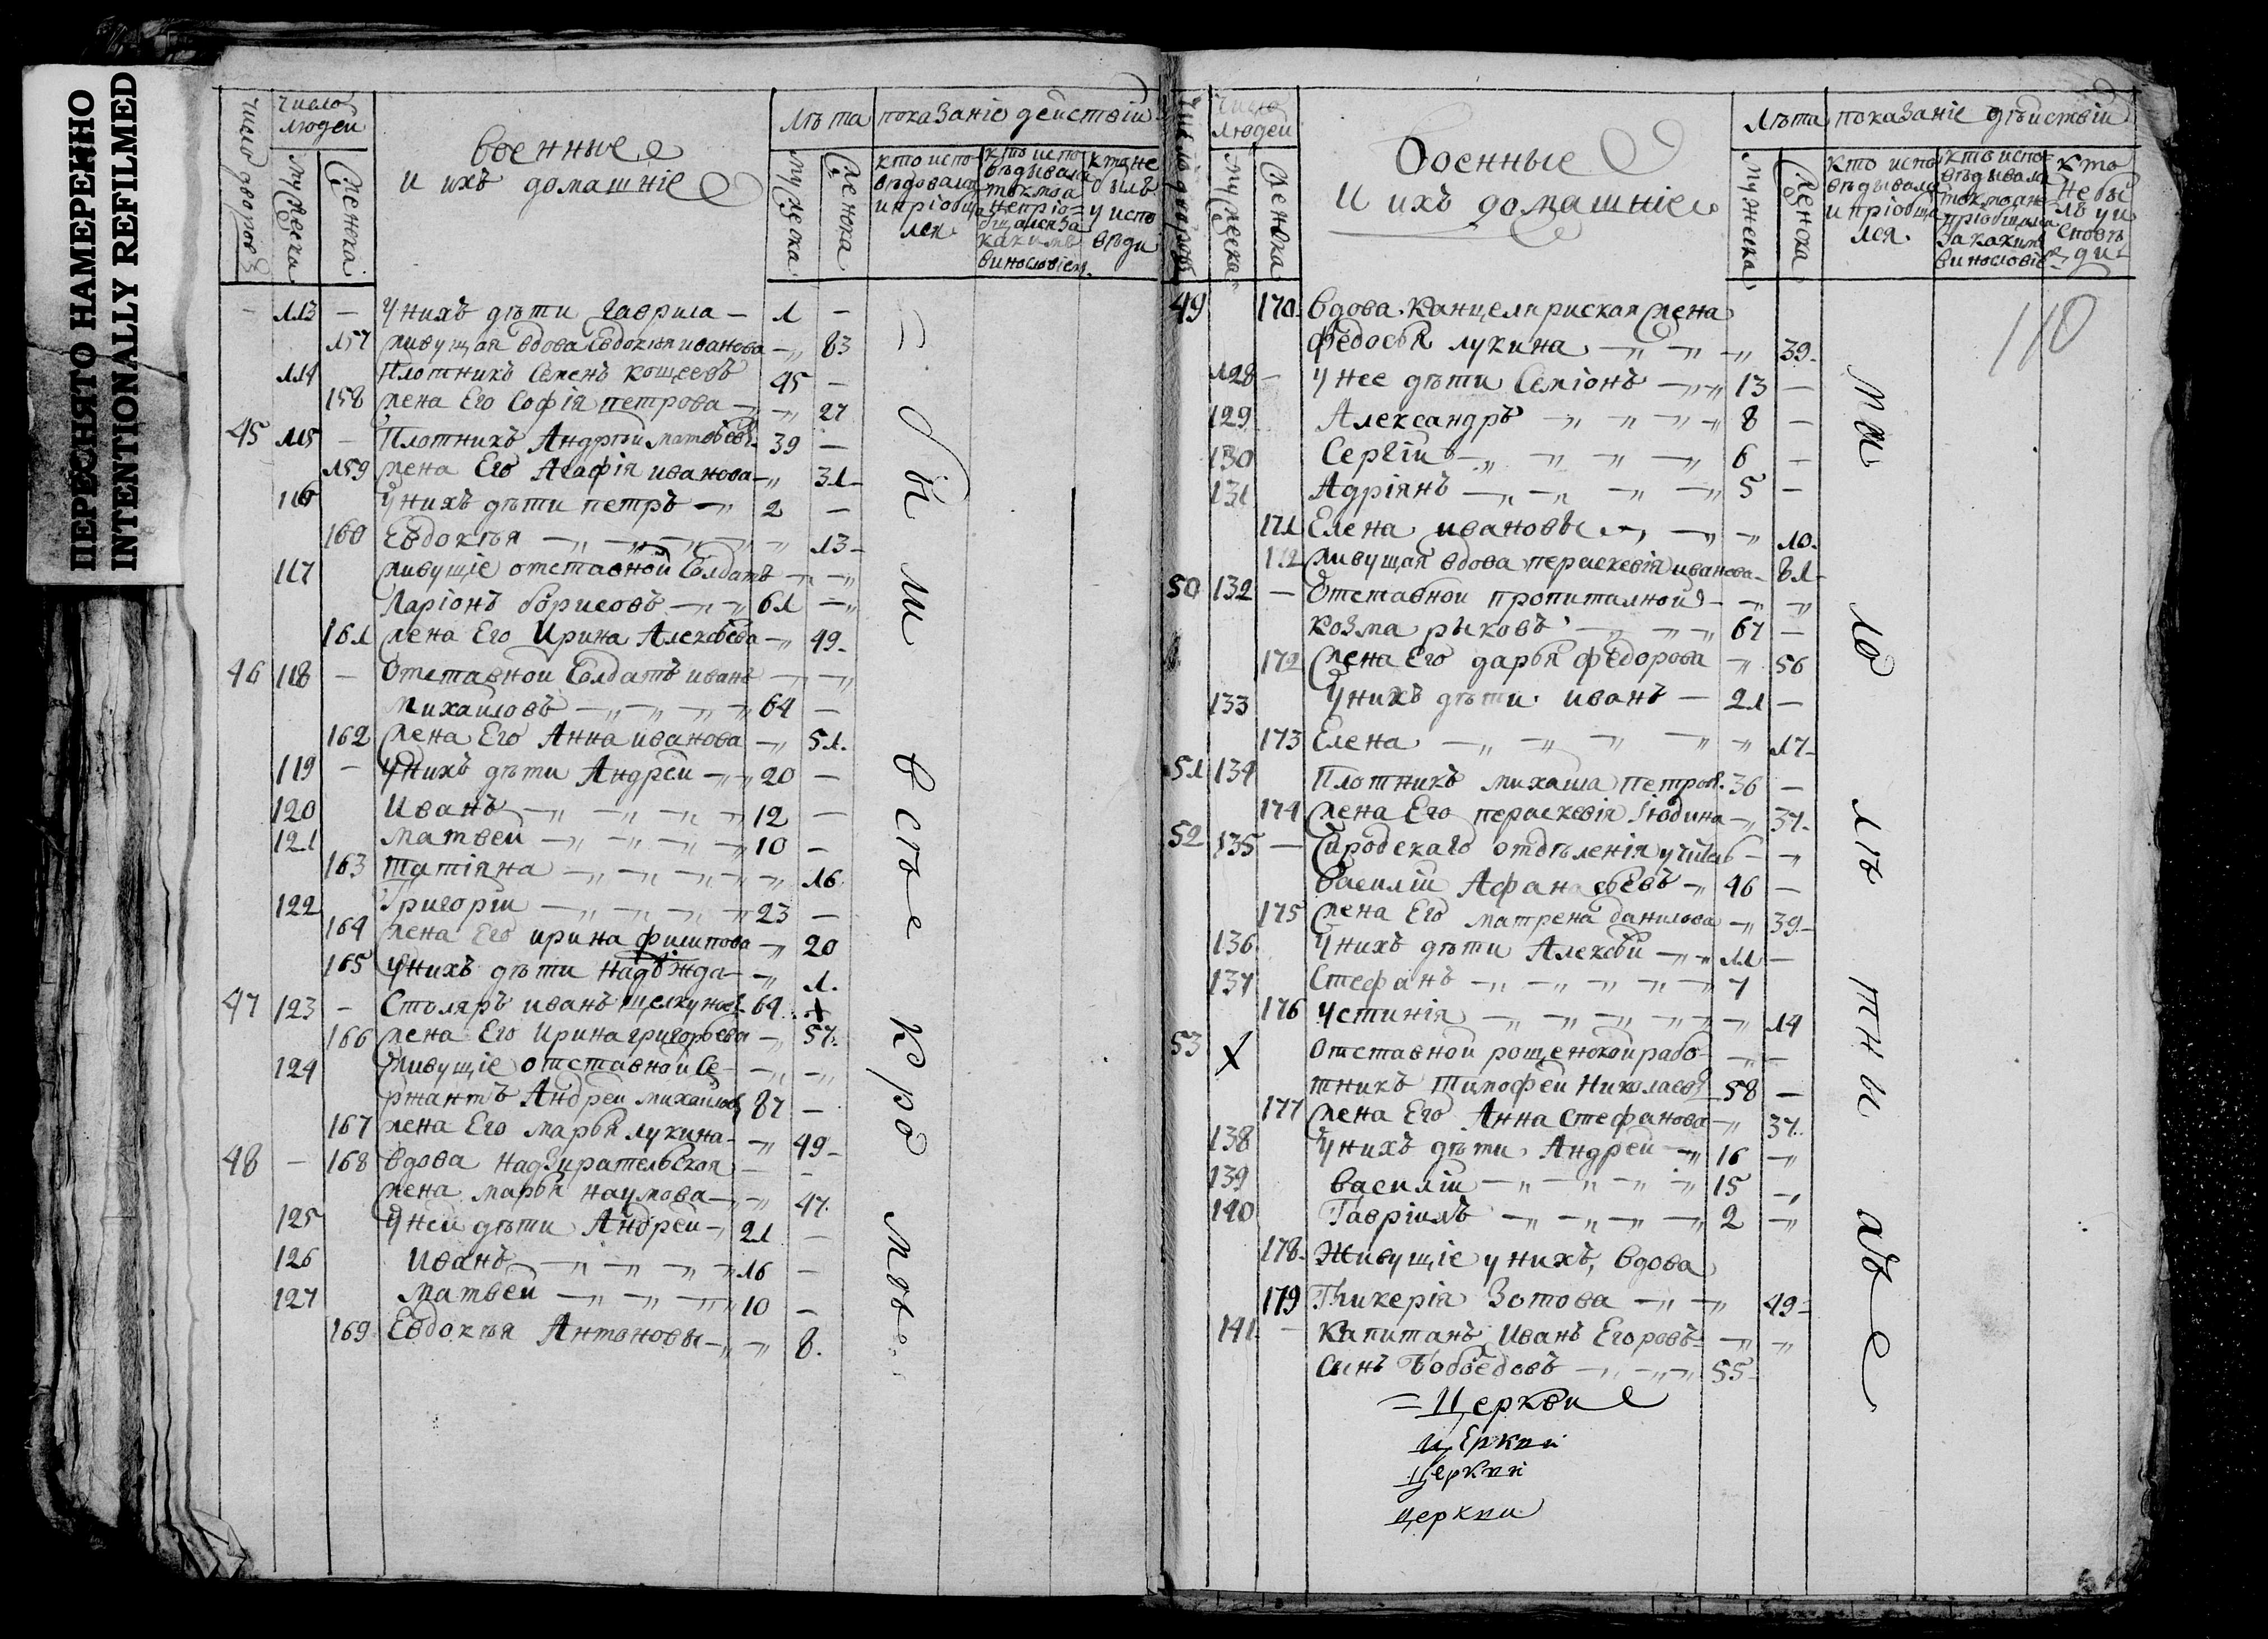 ПЕРЕСНЯТО НАМЕРЕННО
INTENTIONALLY REFILMED
число дворовъ
число людей
мужеска
женска
военные
и ихъ домашніе
лѣта
показаніе действій
мужеска
женска
кто испо-
вѣдовался
и пріобща
лся
кто испо
вѣдывался
токмо а
не пріо=
бщался за
какимъ
винословіем
кто не
былъ
у испо
вѣди
- 113 - У нихъ дѣти Гаврила - 1 -
157 живущая вдова Евдокия иванова - 83
114 Плотникъ Семенъ кощеевъ 45 -
158 жена Его Софія петрова - 27
45 115 - Плотникъ Андрѣй матвѣевъ 39 -
159 жена Его Агафія иванова - 31
116 У нихъ дѣти петръ 2 -
160 Евдокѣя - 13
117 живущіе отставной Солдатъ
Ларіонъ борисовъ 61 -
161 жена Его Ирина Алексѣева - 49
46 118 - Отставной Солдатъ иванъ
михаиловъ 64 -
162 жена Его Анна иванова - 51
119 - У нихъ дѣти Андреи 20 -
120 Иванъ 12 -
121 матвеи 10 -
163 татіяна 16
122 Григоріи 23 -
164 жена Его ирина филипова 20
165 У нихъ дѣти надѣжда 1
47 123 - Столяръ иванъ щелкунов 64 x
166 жена Его Ирина григорьева 57
124 Живущіе отставной Се-
ржантъ Андреи михаилов 87 -
167 жена Его марья лукина 49
48 - 168 вдова надзирательская
жена марья наумова 47
125 У ней дѣти Андреи 21 -
126 Иванъ 16 -
127 матвеи 10 -
169 Евдокѣя Антоновы 8
были всѣ кромѣ
число дворовъ
число людей
мужеска
женска
Военные
И ихъ домашніе
лѣта
показаніе дѣйствіи
мужеска
женска
кто испо
вѣдывался
и пріобща
лся
кто испо=
вѣдывался
токмо а не
пріобщался
за каким
винословіе
кто
не бы
лъ у и
сповѣ
ди
110
49 170 вдова Канцеляриская жена
Федосья лукина 39
128 - У нее дѣти Семіонъ 13 -
129 Александръ 8 -
130 Сергій 6 -
131 Адріянъ 5 -
171 Елена ивановы 10
172 живущая вдова пераскевія иванова 81
50 132 - Отставной пропиталной
козма рыковъ 67 -
172 жена Его дарья федорова 56
133 У нихъ дѣти иванъ 21 -
173 Елена 17
51 134 Плотникъ михаила Петров. 36 -
174 жена Его пераскевія Июдина 37
52 135 -
Василіи Афанасьевъ 46 -
175 жена Его матрена данилова 39
136 У нихъ дѣти Алексѣй 11 -
137 Стефанъ 7
176 Устинія 14
53 x Отставной рощенской рабо-
тникъ Тимофеи Николаевъ 58 -
177 жена Его Анна Стефанова 37
138 У нихъ дѣти Андреи 16
139 василіи 15
140 Гавріилъ 2
178 Живущіе у нихъ, вдова
179 Гликерія Зотова 49
141 - капитанъ Иванъ Егоровъ
сынъ Бобоѣдовъ 55
малолѣтни
= Церкви
церкви
Церкви
церкви